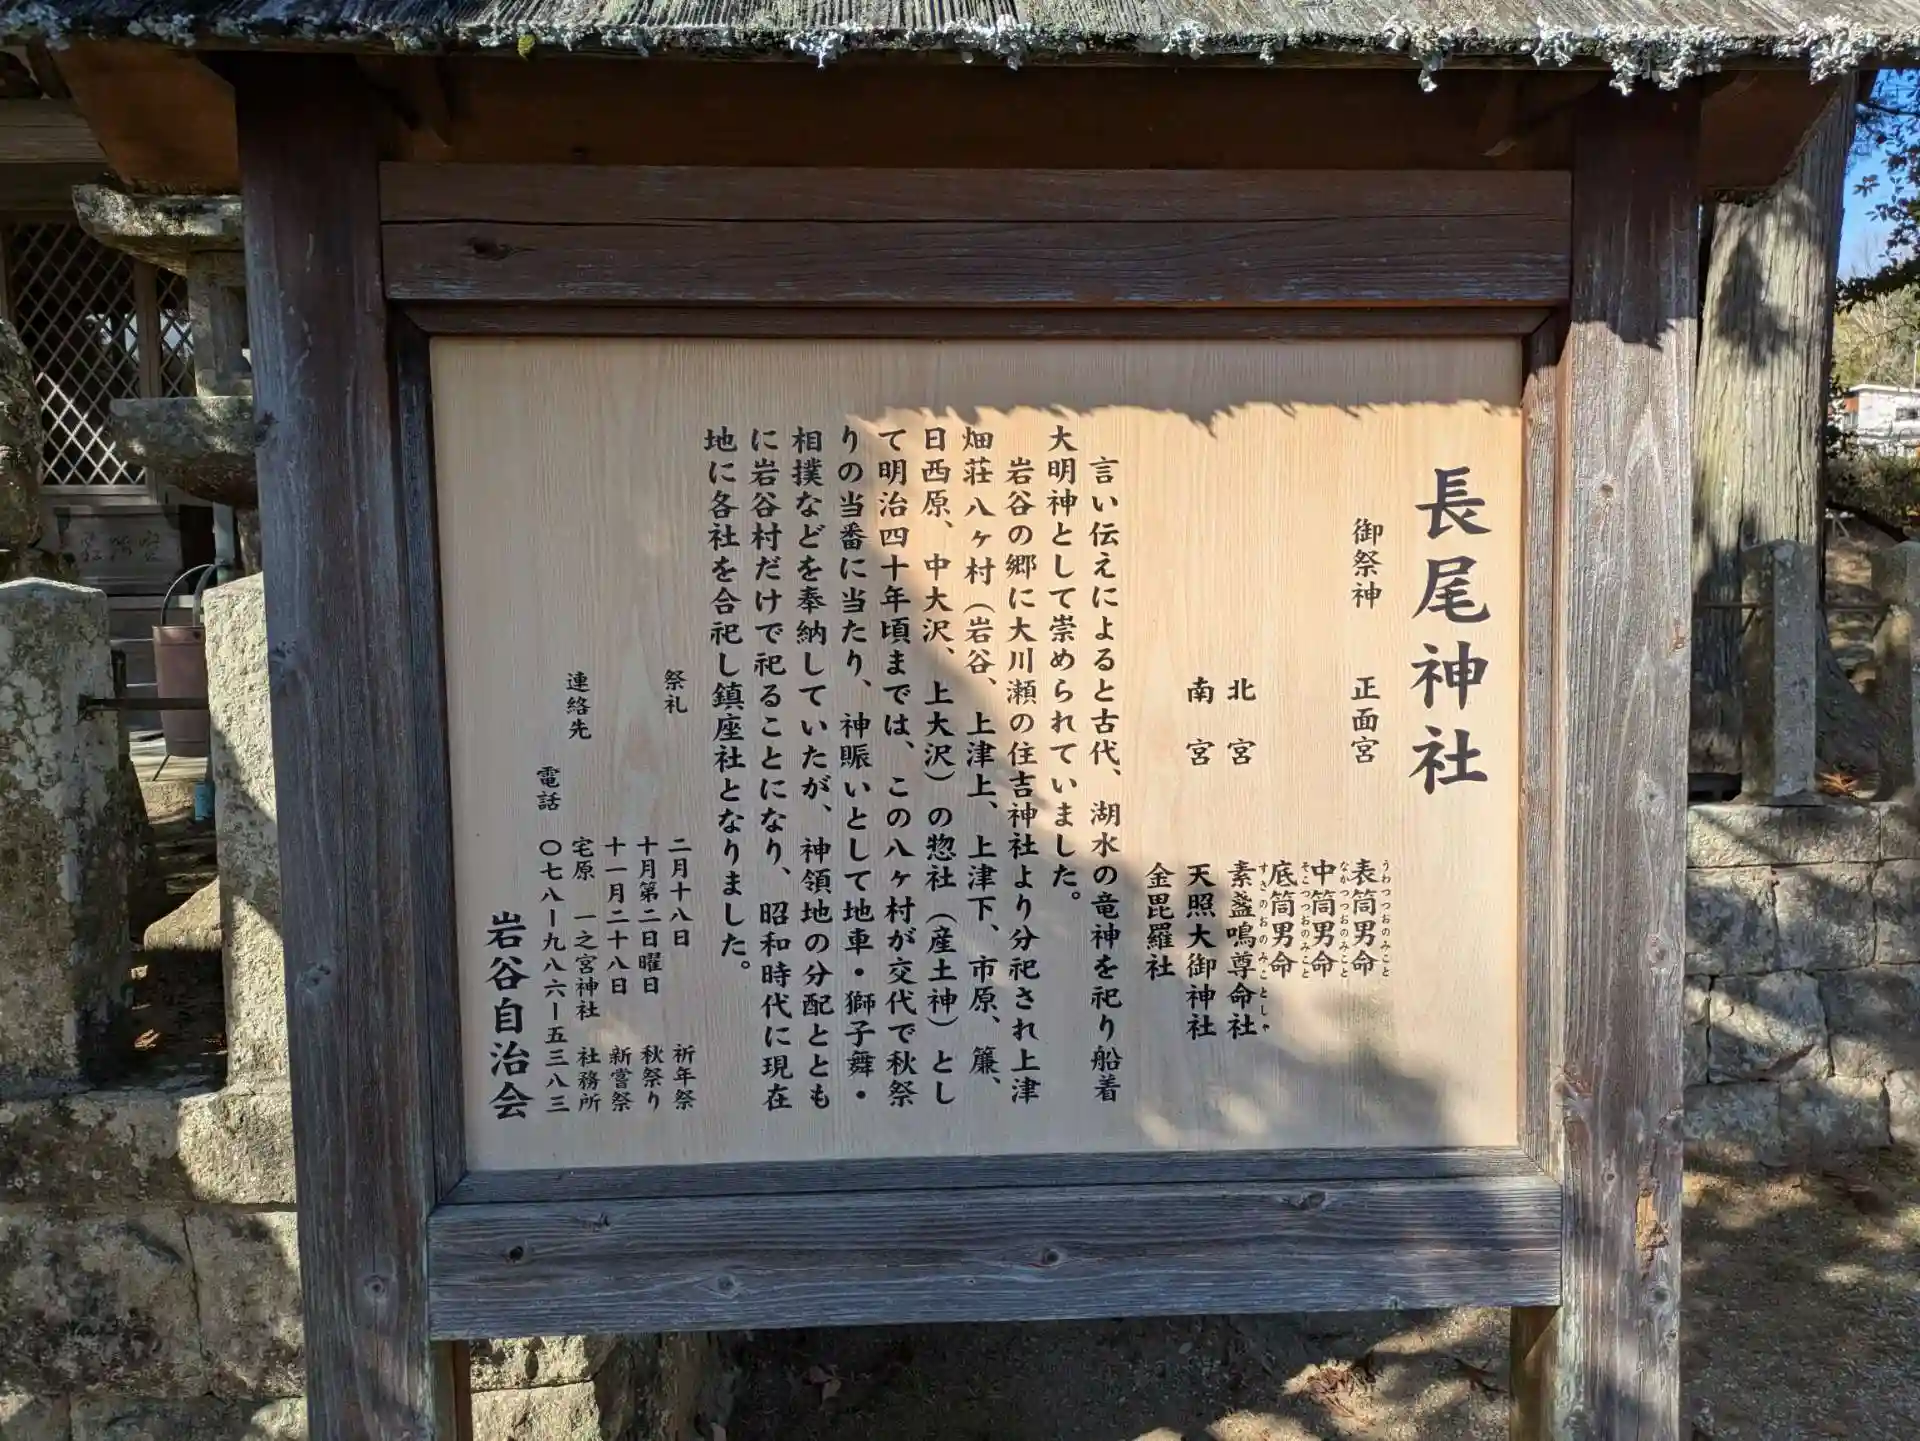 長尾神社
御祭神 正面宮 表筒男命
うわつつおのみこと
中筒男命
なかつつおのみこと
底筒男命
そこつつおのみこと
北宮 素盞鳴尊命社
すさのおのみことしゃ
南宮 天照大御神社
金毘羅社
言い伝えによると古代、湖水の竜神を祀り船着
大明神として崇められていました。
岩谷の郷に大川瀬の住吉神社より分祀され上津
畑荘八ヶ村（岩谷、上津上、上津下、市原、簾、
日西原、中大沢、上大沢）の惣社（産土神）とし
て明治四十年頃までは、この八ヶ村が交代で秋祭
りの当番に当たり、神賑いとして地車・獅子舞・
相撲などを奉納していたが、神領地の分配ととも
に岩谷村だけで祀ることになり、昭和時代に現在
地に各社を合祀し鎮座社となりました。
祭礼 二月十八日 祈年祭
十月第二日曜日 秋祭り
十一月二十八日 新嘗祭
連絡先 宅原 一之宮神社 社務所
電話 〇七八ー九八六ー五三八三
岩谷自治会